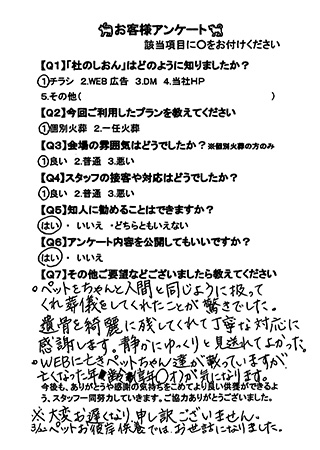 お客様アンケート
該当項目に〇をお付けください
【Q1】「杜のしおん」はどのように知りましたか？
①チラシ 2.WEB広告 3.DM 4.当社HP
5.その他(　　　　　)
【Q2】今回ご利用したプランを教えてください
①個別火葬 2.一任火葬
【Q3】会場の雰囲気はどうでしたか？※個別火葬の方のみ
①良い 2.普通 3.悪い
【Q4】スタッフの接客や対応はどうでしたか？
①良い 2.普通 3.悪い
【Q5】知人に勧めることはできますか？
はい・いいえ・どちらともいえない
【Q6】アンケート内容を公開してもいいですか？
はい・いいえ
【Q7】その他ご要望などございましたら教えてください
○ペットをちゃんと人間と同じように扱って
くれ葬儀をしてくれたことが驚きでした。
遺骨を綺麗に残してくれて丁寧な対応に
感謝します。静かにゆっくりと見送れてよかった。
○WEBにときペットちゃん達が載っていますが
亡くなった年齢(享年○才)が気になります。
今後も、ありがとうや感謝の気持ちをこめてより良い供養ができるよ
う、スタッフ一同努力していきます。ご協力ありがとうございました。
※大変お遅くなり、申し訳ございません。
ペットお彼岸供養では、お世話になりました。